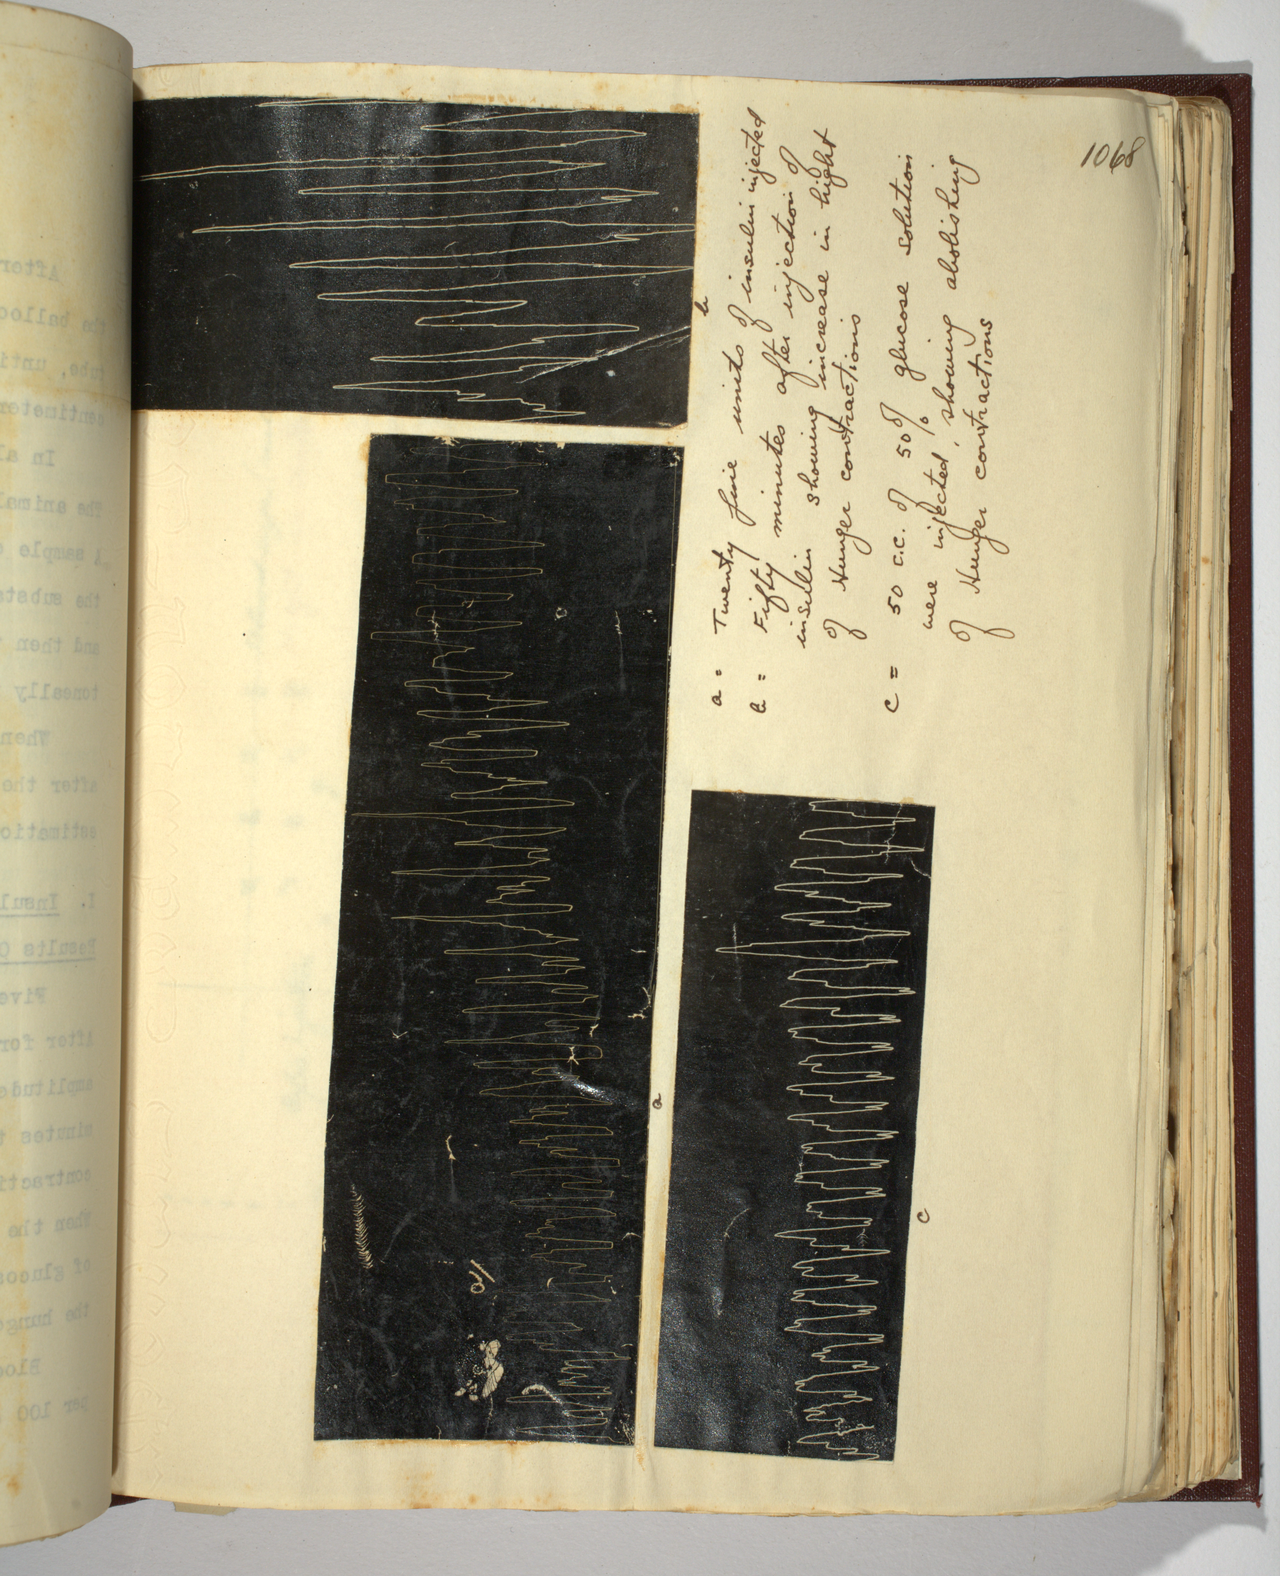 1068
a = Twenty five units of insulin injected
b = Fifty minutes after injection of
insulin showing increase in hight
of Hunger contractions
c = 50 c.c. of 50% glucose solution
were injected, showing abolishing
of Hunger contractions
b
a
c
After
the balloo
tube, unti
centimeter
In al
The animal
A sample o
the substa
and then
toneally
When
after the
estimatio
I. Insul
Results O
Five
After for
amplitude
minutes t
contracti
When the
of glucos
the hung
Bloo
per 100